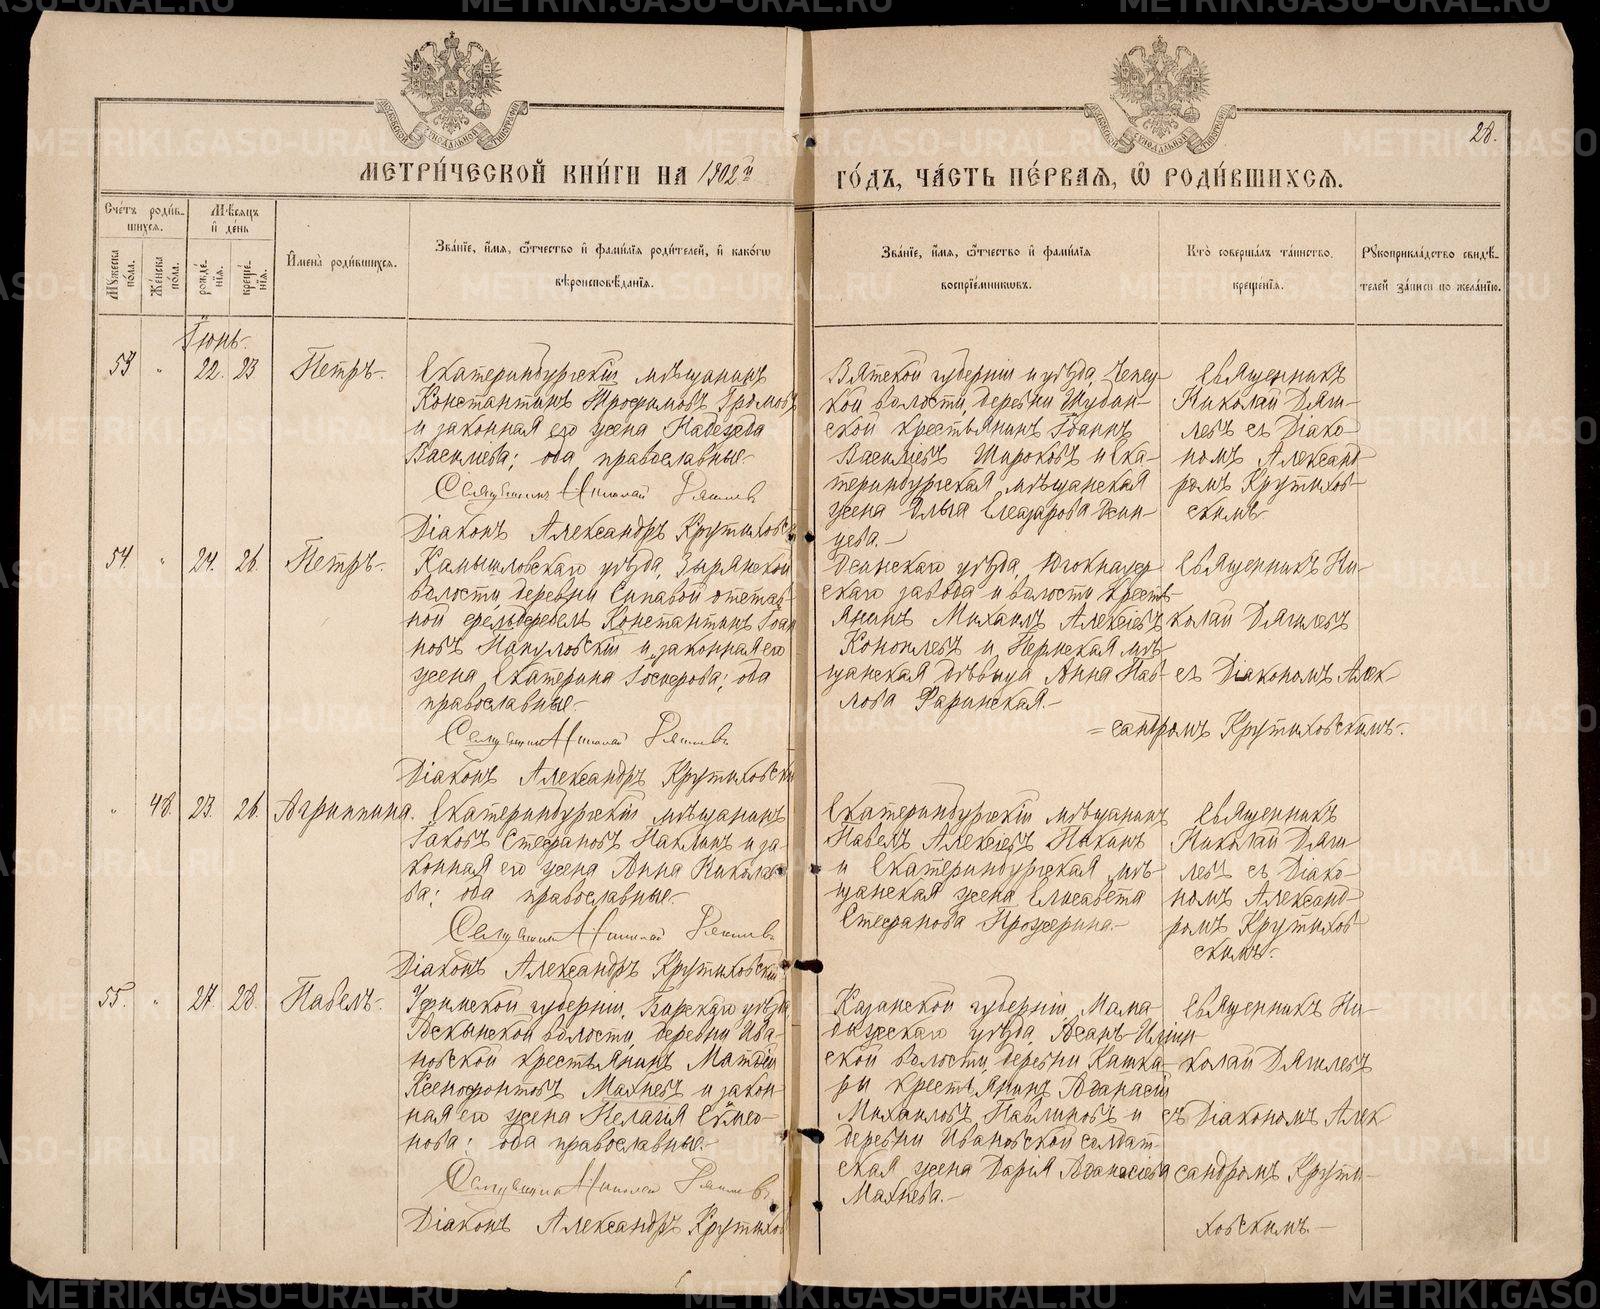 28.
МЕТРИ́ЧЕСКОЙ КНИ́ГИ НА 1902й
ГО́ДЪ, ЧА́СТЬ ПЕ́РВАЯ, Ѽ РОДИ́ВШИХСЯ.
Сче́тъ роди́в-
шихся.
Мꙋжеска по́ла.
Же́нска по́ла.
Мѣ́сяцъ
и҆ де́нь
рожде́нїя.
креще́нїя.
И҆мена̀ роди́вшихся.
Зва́нїе, и҆́мя, ѻ҆́тчество и҆ фами́лїя роди́телей, и҆ како́гѡ
вѣроисповѣ́данїя.
Зва́нїе, и҆́мя, ѻ҆́тчество и҆ фами́лїя
воспрїе́мникѡвъ.
Кто̀ соверша́лъ та́инство
креще́нїя.
Рꙋкоприкла́дство свидѣ́-
телей за́писи по жела́нїю.
Іюнь.
53 " 22. 23 Петръ.
Екатеринбургскій мѣщанинъ
Константинъ Трофимовъ Громовъ
и законная его жена Надежда
Васильева; оба православные.
Священникъ Николай Дягилевъ
Діаконъ Александръ Крутиховск
Вятской губерніи и уѣзда, Чепец-
кой волости, деревни Шубин-
ской крестьянинъ Іоаннъ
Васильевъ Широковъ и Ека-
теринбургская мѣщанская
жена Ольга Елеазарова Осин-
цева.
Священникъ
Николай Дяги-
левъ съ Діако-
номъ Александ-
ромъ Крутихов-
скимъ.
54. " 24. 26. Петръ.
Камышловскаго уѣзда, Зырянской
волости, деревни отстав-
ной фельдфебель Константинъ Іоан
новъ и законная его
жена Екатерина; оба
православные.
Священникъ Николай Дягилевъ
Діаконъ Александръ Крутиховски
Осинскаго уѣзда, Югокнауф-
скаго завода и волости крестья-
янинъ Михаилъ Алексіевъ
Коноплевъ и Пермская мѣ-
щанская дѣвица Анна Пав-
лова Фаринская.
Священникъ Ни-
колай Дягилевъ
съ Діакономъ Алек
=сандромъ Крутиховскимъ.
" 48. 23. 26. Агриппина.
Екатеринбургскій мѣщанинъ
Іаковъ Стефановъ Паклинъ и за-
конная его жена Анна Никола-
ва; оба православные.
Священникъ Николай Дягилевъ
Діаконъ Александръ Крутиховскі
Екатеринбургскій мѣщанинъ
Павелъ Алексіевъ Никинъ
и Екатеринбургская мѣ-
щанская жена Елисавета
Стефанова Прожерина.
Священникъ
Николай Дяги-
левъ съ Діако-
номъ Александ-
ромъ Крутихов-
скимъ.
55. " 27. 28. Павелъ.
Уфимской губерніи, Бирскаго уѣзда
волости, деревни Ива-
новской крестьянинъ Матѳій
Ксенофонтовъ Махневъ и закон-
ная его жена Пелагія Сѵмео-
нова; оба православные.
Священникъ Николай Дягилевъ
Діаконъ Александръ Крутихов
Казанской губерніи, Мама-
дыжскаго уѣзда, Асанъ-Илгин
ской волости, деревни Кашка-
ры крестьянинъ Аѳанасій
Михаиловъ Павлиновъ и
деревни Ивановской солдат-
ская жена Дарія Аѳанасіева
Махнева.
Священникъ Ни-
колай Дягилевъ
съ Діакономъ Алек
сандромъ Крути-
ховскимъ.